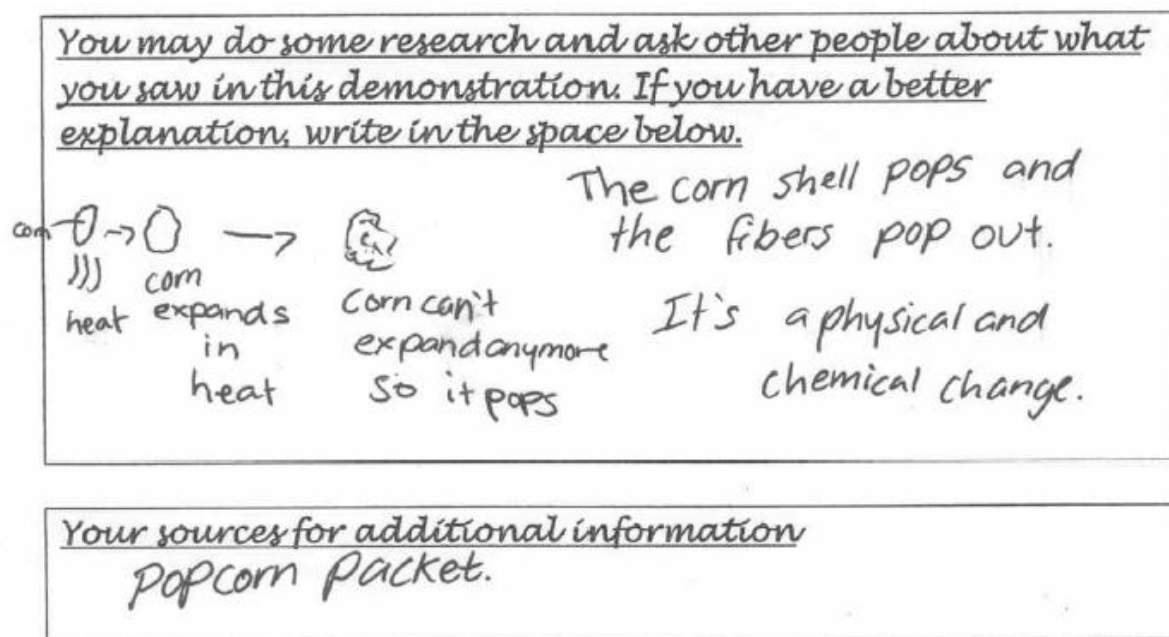 You may do some research and ask other people about what
you saw in this demonstration. If you have a better
explanation, write in the space below.
corn
heat
corn
expands
in
heat
corn can't
expand anymore
so it pops
The corn shell pops and
the fibers pop out.
It's a physical and
chemical change.
Your sources for additional information
popcorn packet.